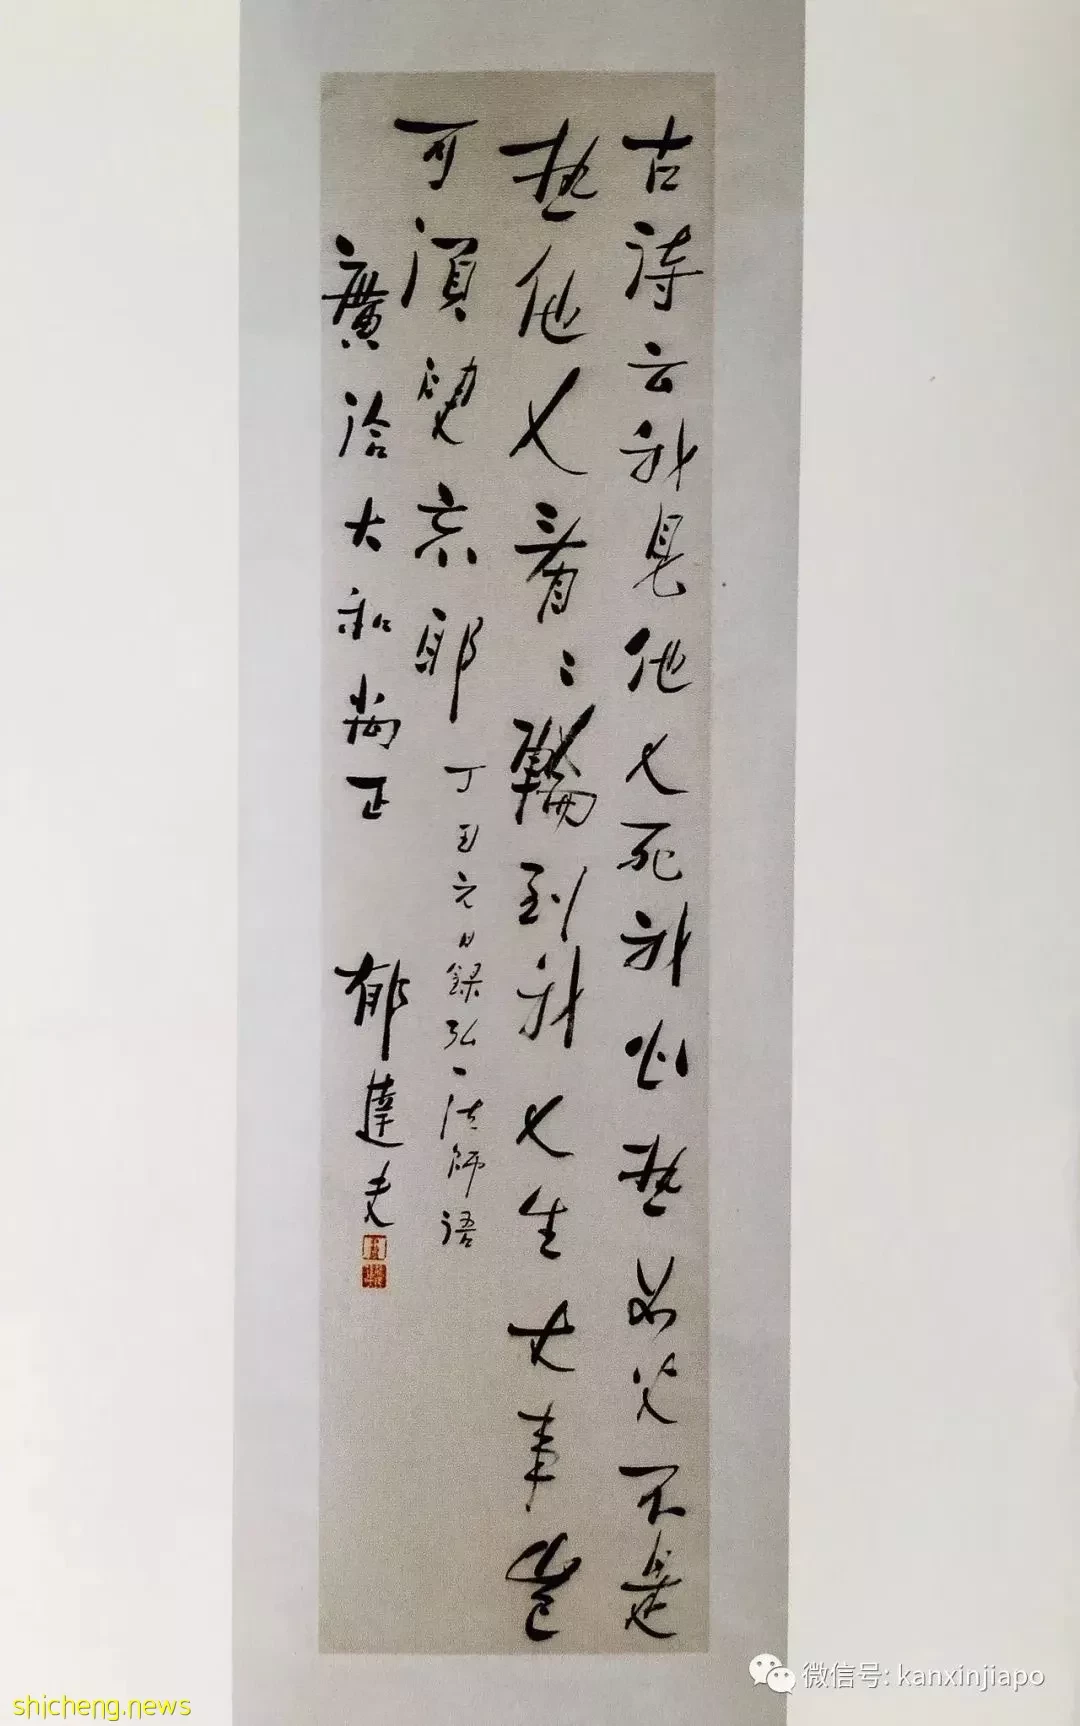 古詩云我見他人死我心热如火不是
热他人看〻輪到我人生大事豈
可須臾忘耶 丁丑元日録弘一法師語
廣洽大和尚正 郁達夫
微信号: kanxinjiapo
shicheng.news